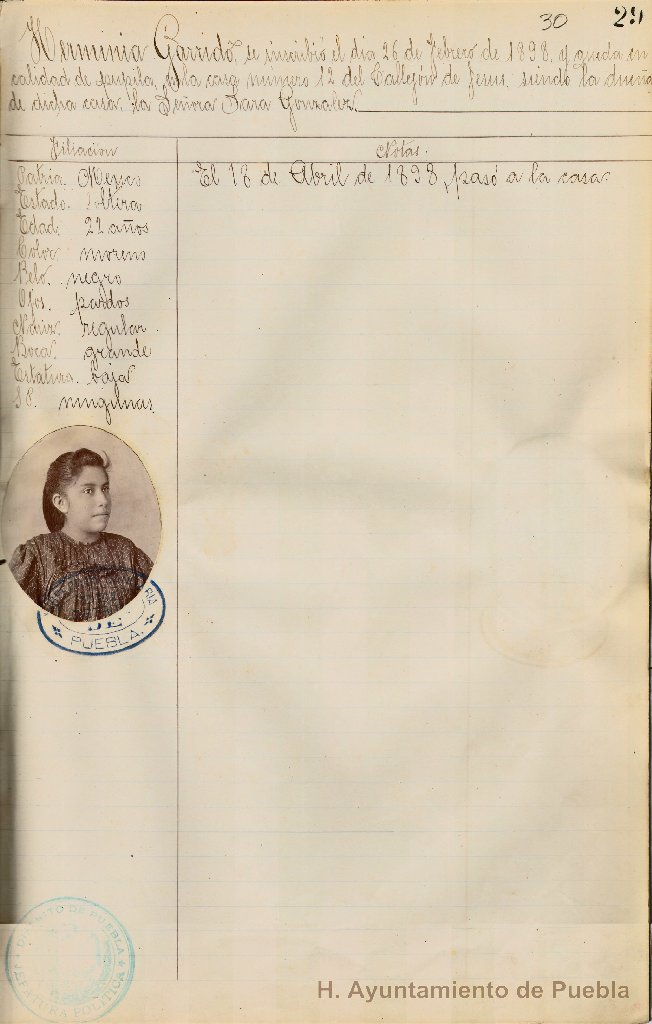 30 29
Herminia Garrido, se inscribió el dia 26 de Febrero de 1898, y queda en
calidad de pupila, en la casa número 12 del Callejon de Jesus, siendo la dueña
de dicha casa, la Señora Sara Gonzalez.
Filiacion
Notas.
Patria. Mexico
El 18 de Abril de 1898, pasó a la casa
Estado. soltera
Edad. 22 años
Color. moreno
Pelo. negro
Ojos. pardos
Nariz. regular
Boca. grande
Estatura. baja
S.S. ningunas.
DE
PUEBLA.
DISTRITO DE PUEBLA
JEFATURA POLITICA
H. Ayuntamiento de Puebla